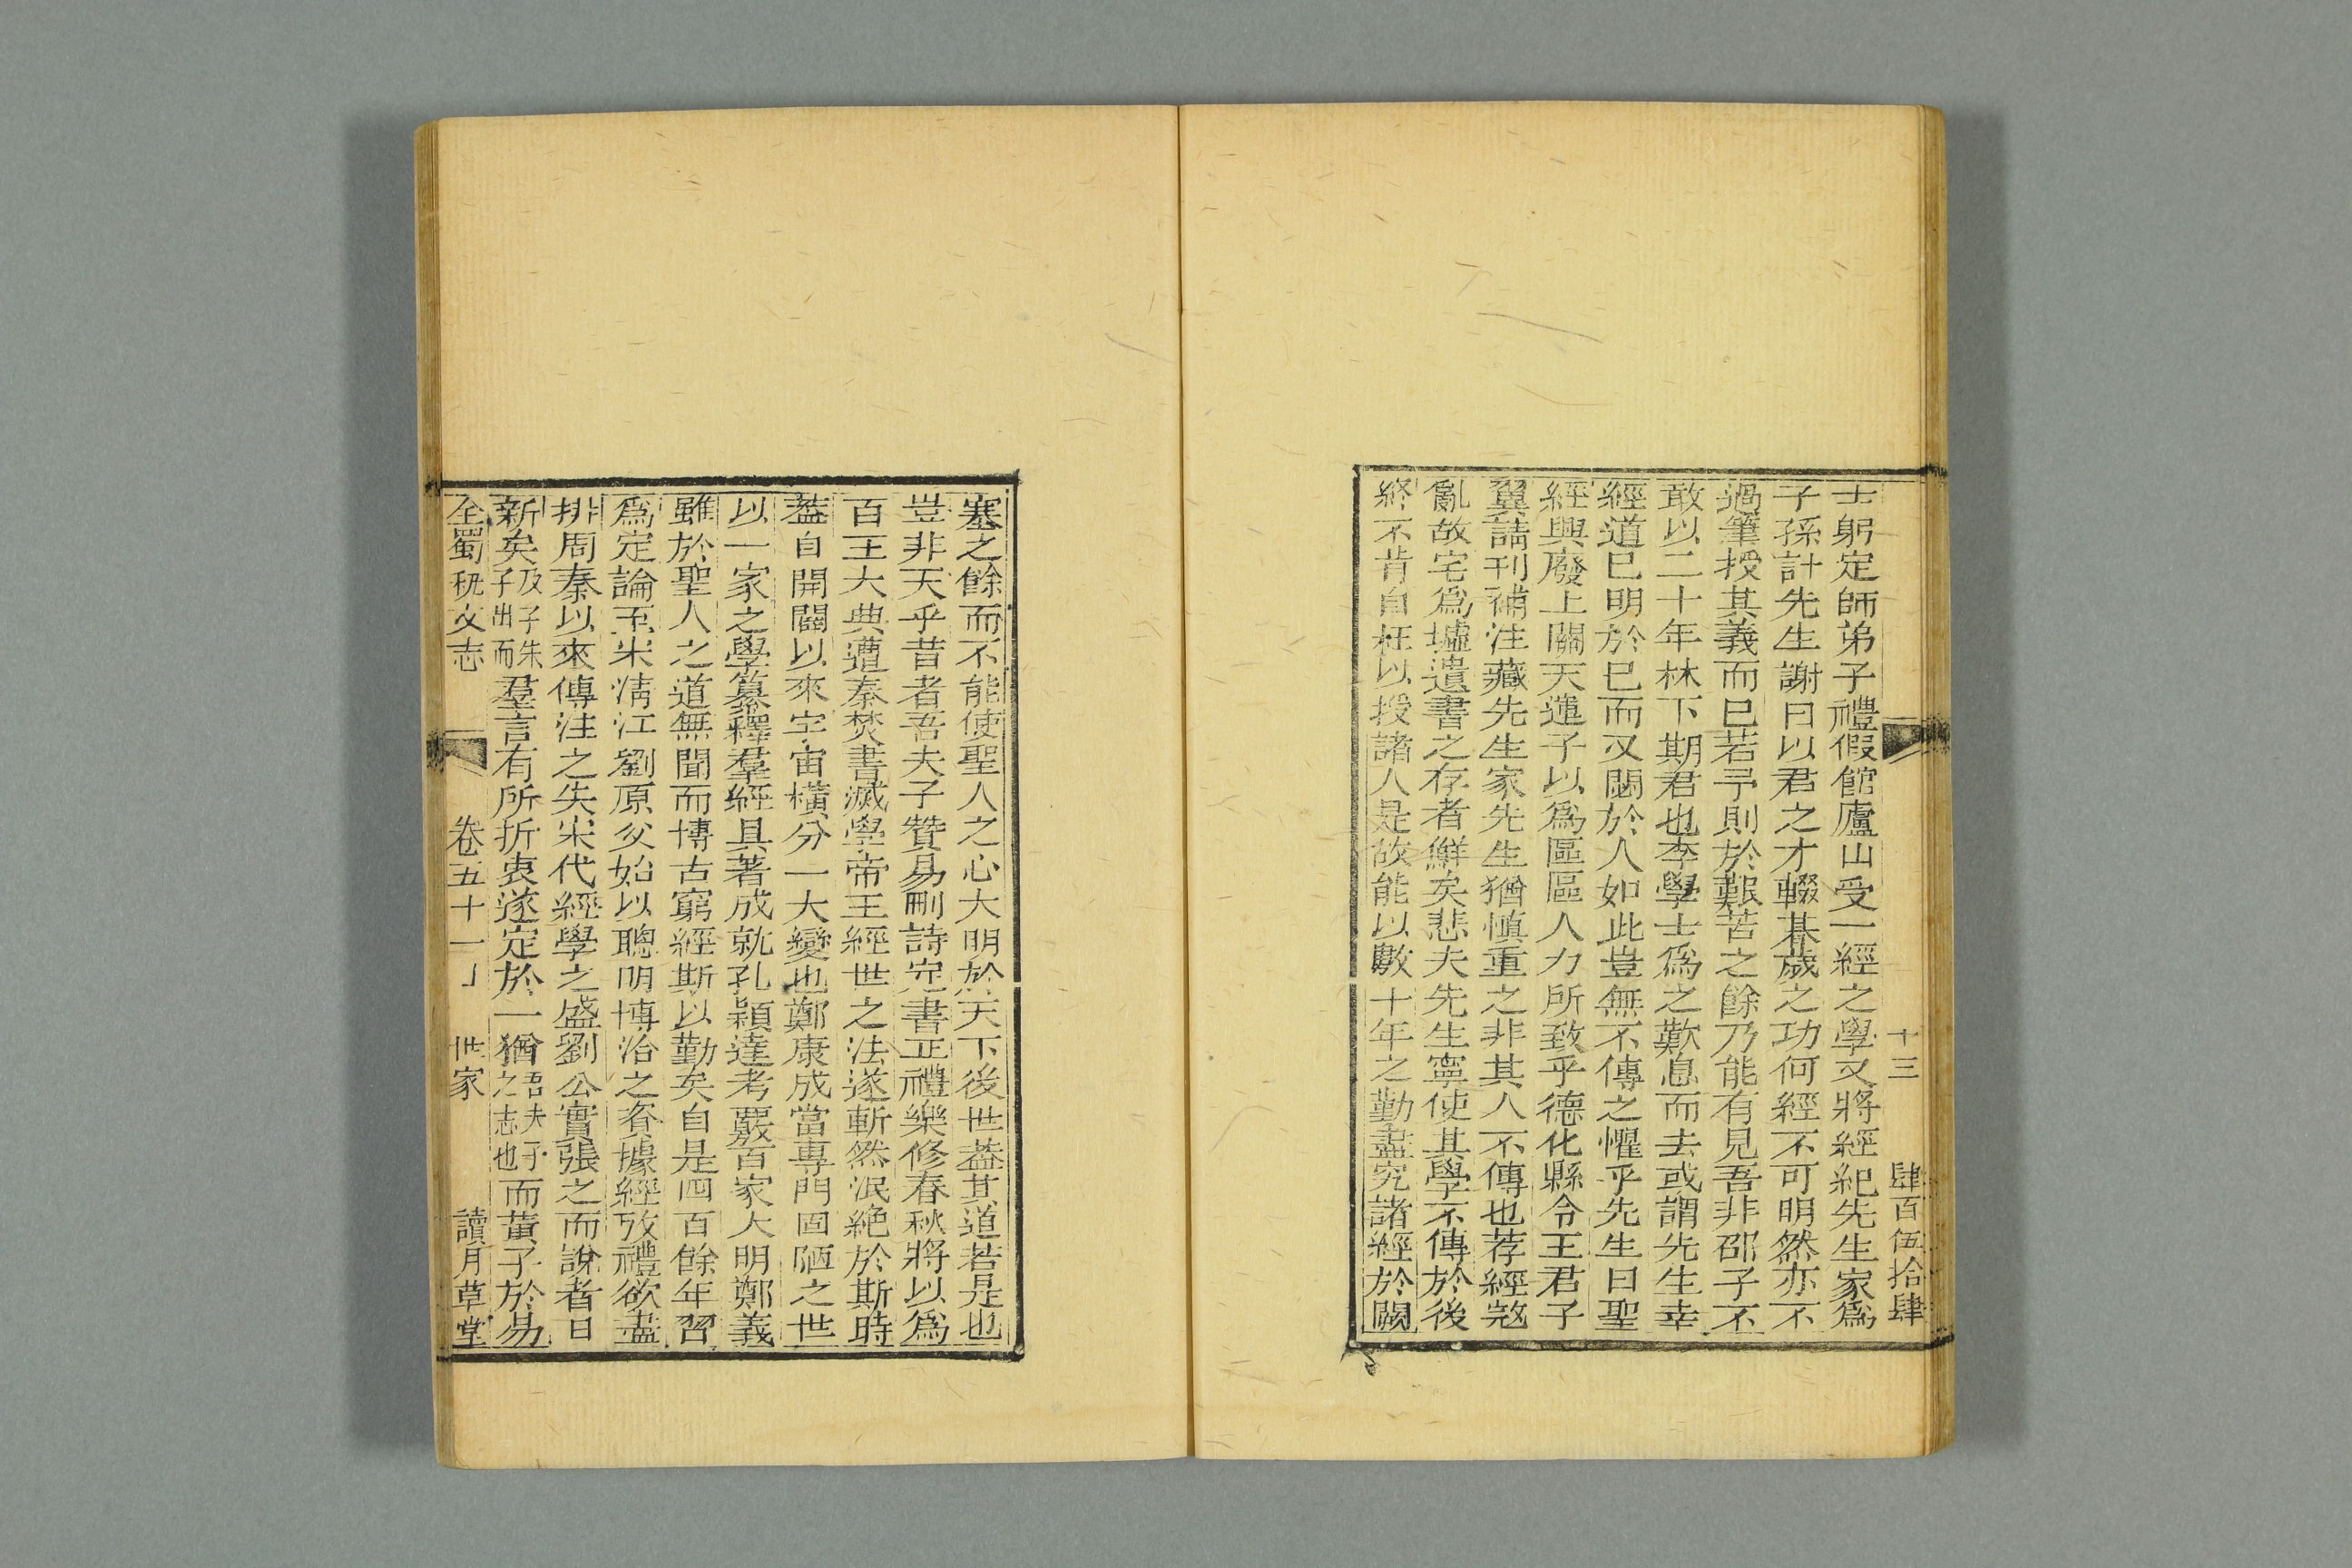 十三　肆百伍拾肆
士躬定師弟子禮假館廬山受一經之學又將經紀先生家爲
子孫計先生謝曰以君之才輟朞歲之功何經不可明然亦不
過筆授其義而已若予則於艱苦之餘乃能有見吾非邵子不
敢以二十年林下期君也李學士爲之歎息而去或謂先生幸
經道已明於已而又閟於人如此豈無不傳之懼乎先生曰聖
經興廢上關天運子以爲區區人力所致乎德化縣令王君子
翼請刊補注藏先生家先生猶慎重之非其人不傳也荐經寇
亂故宅爲墟遺書之存者鮮矣悲夫先生寧使其學不傳於後
終不肯自枉以授諸人是故能以數十年之勤盡究諸經於闕
塞之餘而不能使聖人之心大明於天下後世葢其道若是也
豈非天乎昔者吾夫子贊易刪詩定書正禮樂修春秋將以爲
百王大典遭秦焚書滅學帝王經世之法遂斬然泯絶於斯時
葢自開闢以來宇宙橫分一大變也鄭康成當專門固陋之世
以一家之學纂釋羣經具著成就孔穎達考覈百家大明鄭義
雖於聖人之道無聞而博古窮經斯以勤矣自是四百餘年習
爲定論至宋清江劉原父始以聰明博洽之資據經攷禮欲盡
排周秦以來傳注之失宋代經學之盛劉公實張之而說者曰
新矣及子朱子出而羣言有所折衷遂定於一猶吾夫子之志也而黃子於易
全蜀秇文志　卷五十一　世家　讀月草堂